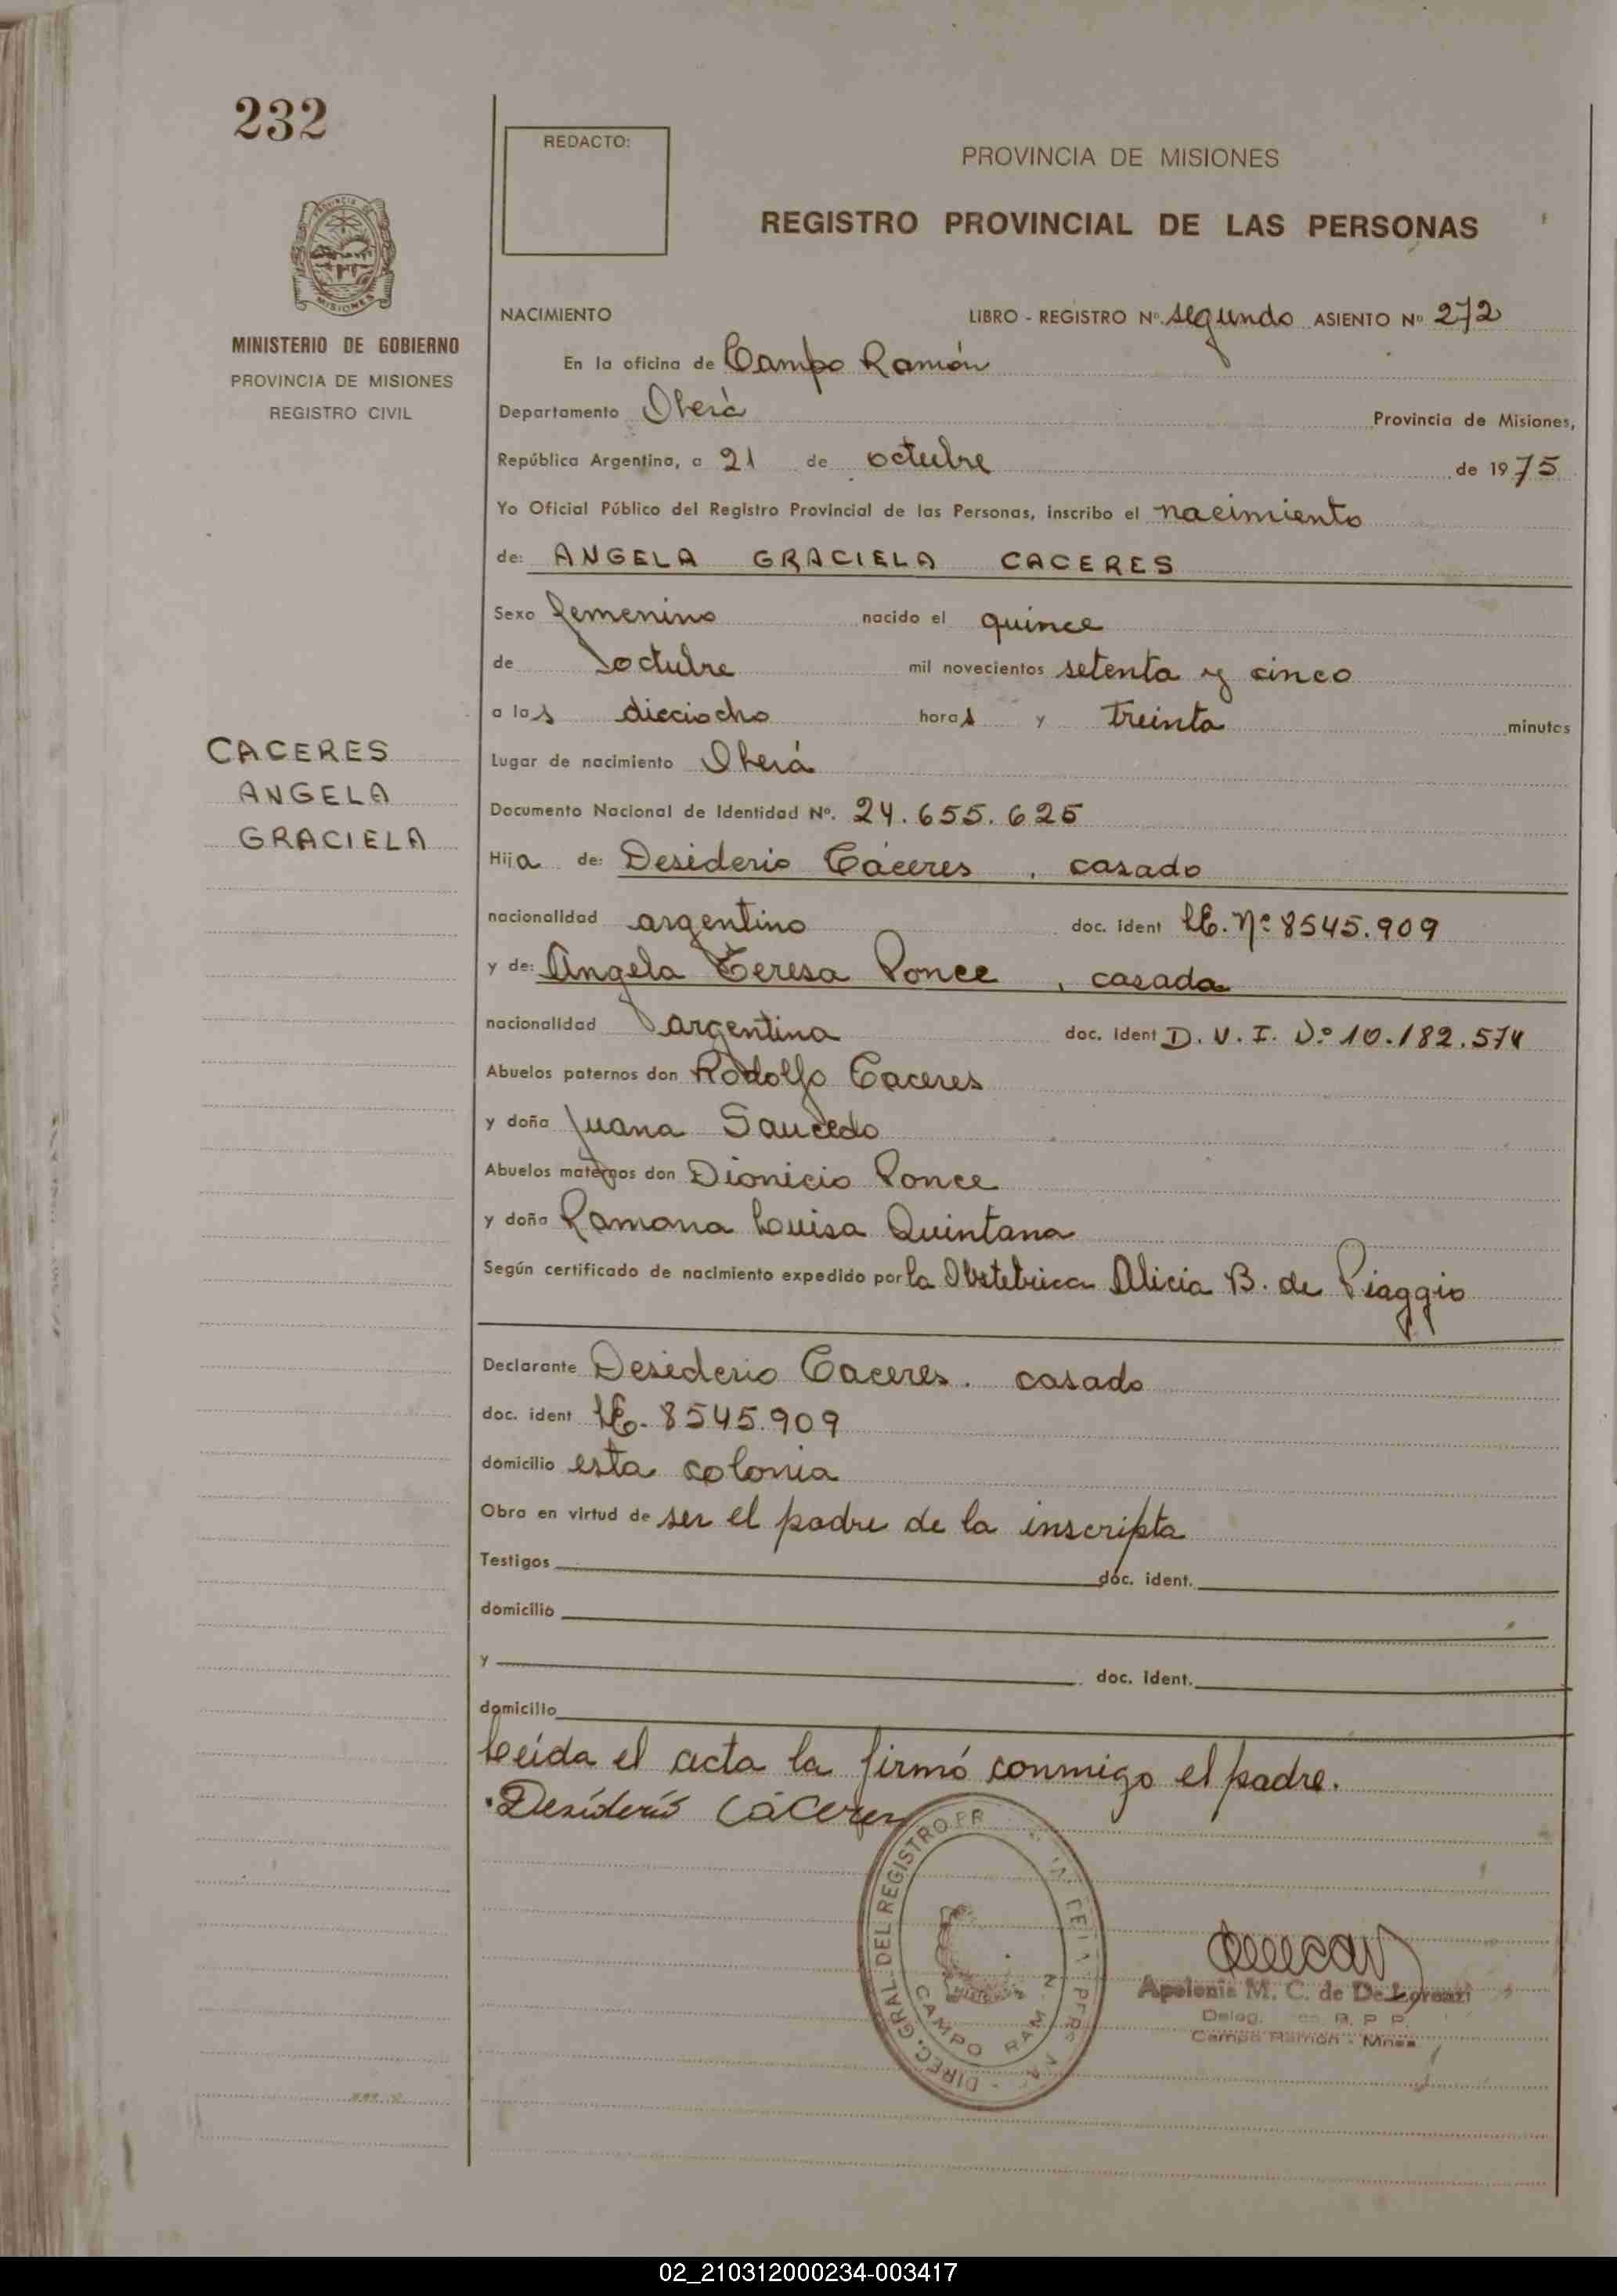 232
REDACTO:
PROVINCIA DE MISIONES
REGISTRO PROVINCIAL DE LAS PERSONAS
MISIONES
MINISTERIO DE GOBIERNO
PROVINCIA DE MISIONES
REGISTRO CIVIL
NACIMIENTO LIBRO - REGISTRO Nº segundo ASIENTO Nº 272
En la oficina de Campo Ramón
Departamento Oberá Provincia de Misiones,
República Argentina, a 21 de octubre de 1975
Yo Oficial Público del Registro Provincial de las Personas, inscribo el nacimiento
de: ANGELA GRACIELA CACERES
Sexo femenino nacido el quince
de octubre mil novecientos setenta y cinco
a las dieciocho horas y treinta minutos
CACERES
ANGELA
GRACIELA
Lugar de nacimiento Oberá
Documento Nacional de Identidad Nº. 24.655.625
Hija de: Desiderio Cáceres, casado
nacionalidad argentino doc. ident LE. Nº 8545.909
y de: Angela Teresa Ponce, casada
nacionalidad argentina doc. ident D.N.I. Nº 10.182.574
Abuelos paternos don Rodolfo Caceres
y doña Juana Saucedo
Abuelos maternos don Dionicio Ponce
y doña Ramona Luisa Quintana
Según certificado de nacimiento expedido por la Obstetrica Alicia B. de Piaggio
Declarante Desiderio Caceres. casado
doc. ident LE. 8545.909
domicilio esta colonia
Obra en virtud de ser el padre de la inscripta
Testigos doc. ident.
domicilio
y doc. ident.
domicilio
Leida el acta la firmó conmigo el padre.
Desiderio Cáceres
DIREC. GRAL. DEL REGISTRO PR
CAMPO RAM N
Apolonia M. C. de De Lorenzi
Deleg. R. P. P.
Campo Ramón - Mnes
02_210312000234-003417